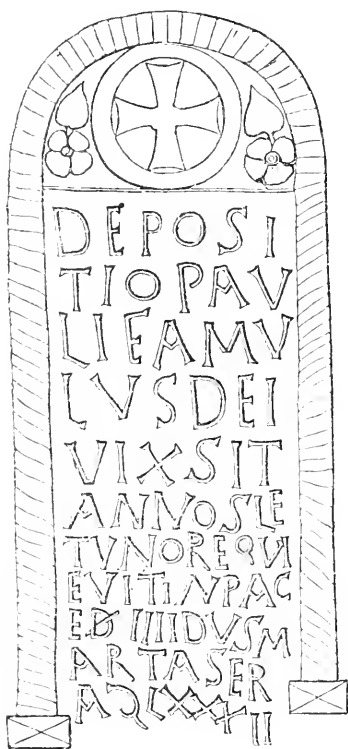 DEPOSI
TIO PAV
LI FAMV
LVS DEI
VIXSIT
ANNOS LE
T VNO REQVI
EVIT IN PAC
E D IIII DVS M
ARTAS ER
A DLXXXII